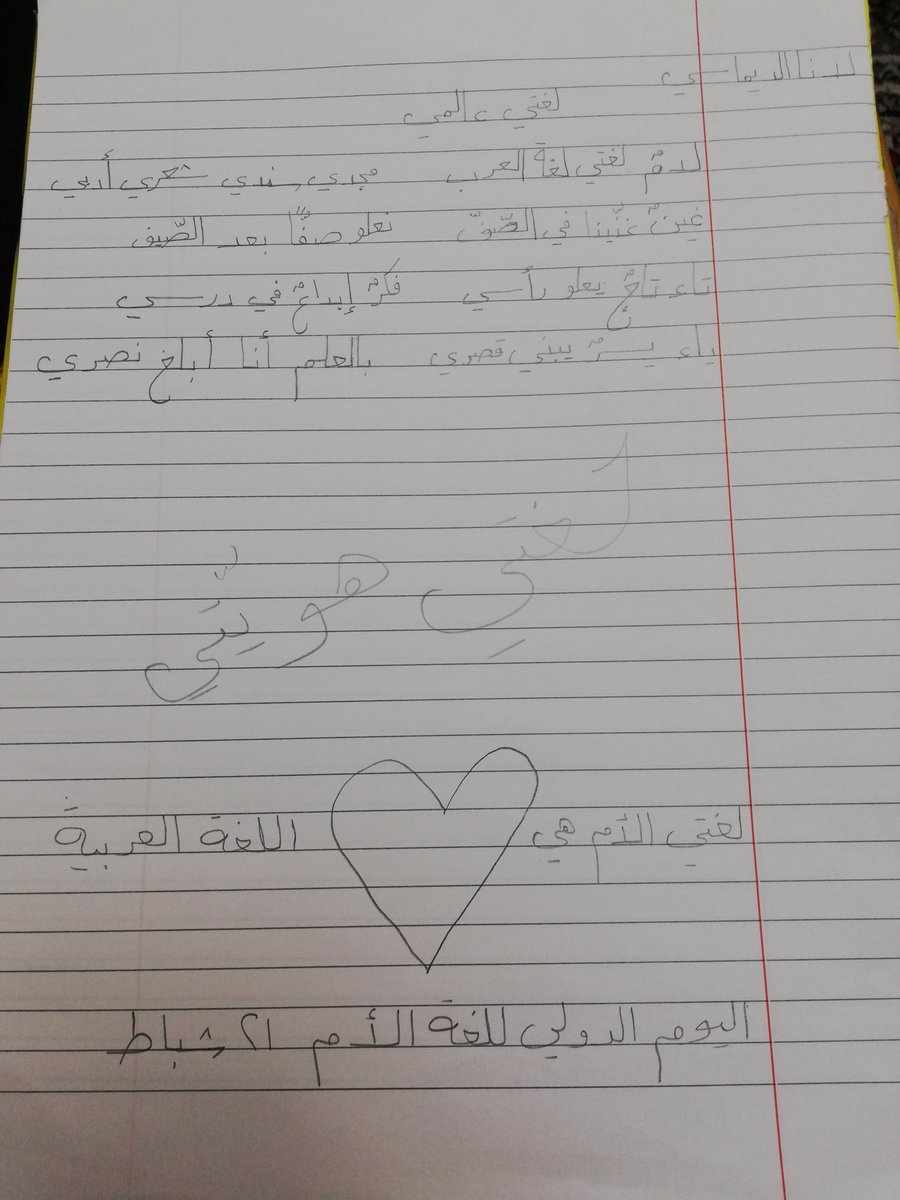 لدنا الديماسي
لغتي عالمي
لامٌ لغتي لغةُ العرب مجدي سندي شعري أدبي
غينٌ غنّينا في الصّفّ نعلو صفًّا بعد الصّيف
تاء تاجٌ يعلو رأسي فكرٌ إبداعٌ في درسي
ياء يسرٌ يبني قصري بالعلم أنا أبلغ نصري
لغتي هويّتي
لغتي الأم هي اللغة العربية
اليوم الدولي للغة الأم ٢١ شباط